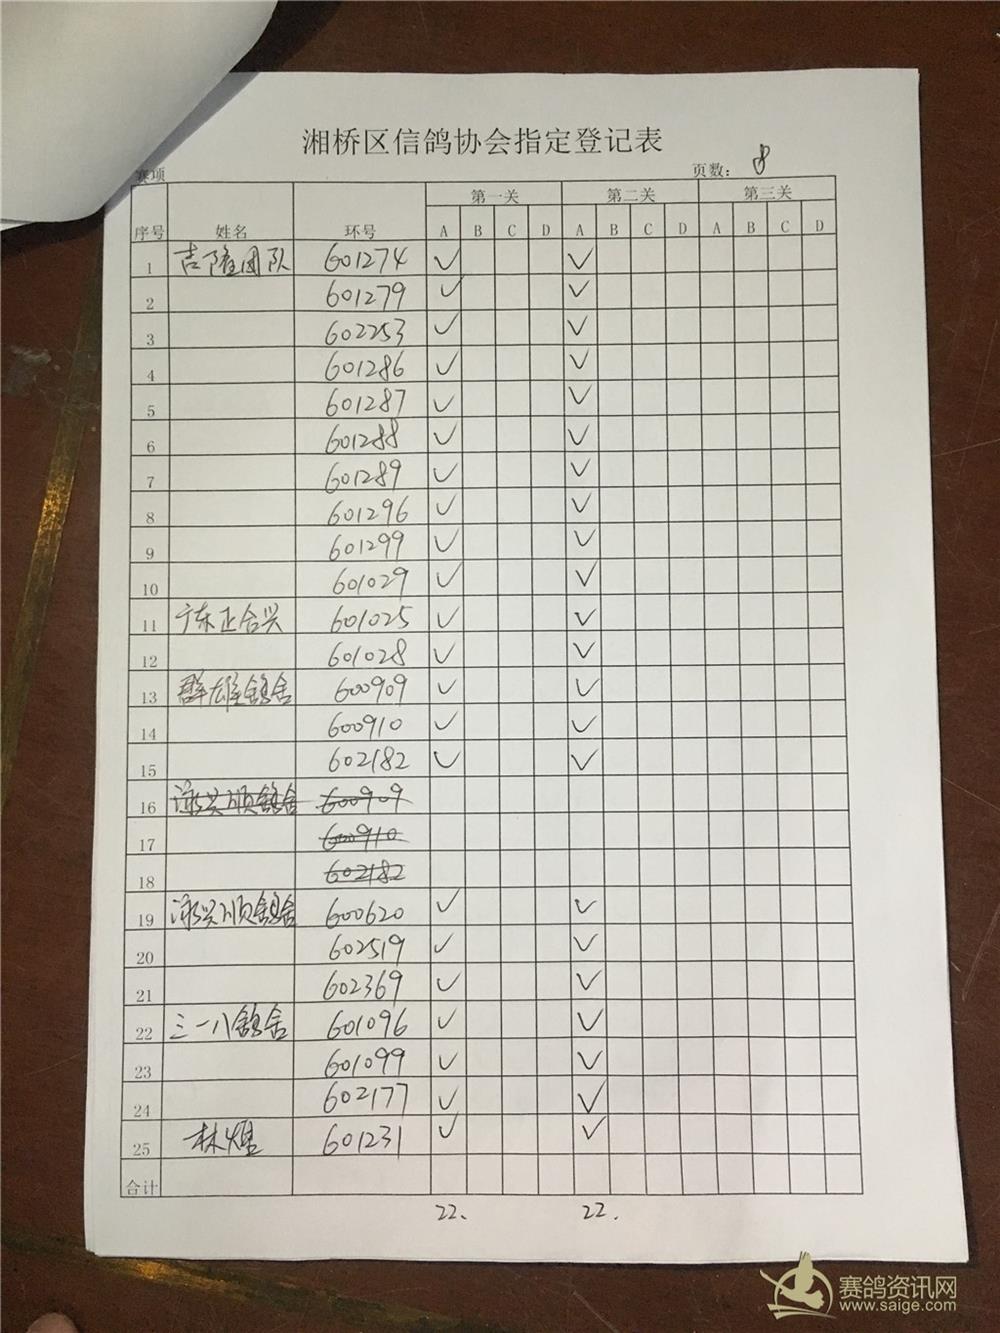 湘桥区信鸽协会指定登记表
赛项 页数: 8
第一关 第二关 第三关
序号 姓名 环号 A B C D A B C D A B C D
1 吉隆团队 601274 ✓ ✓
2 601279 ✓ ✓
3 602253 ✓ ✓
4 601286 ✓ ✓
5 601287 ✓ ✓
6 601288 ✓ ✓
7 601289 ✓ ✓
8 601296 ✓ ✓
9 601299 ✓ ✓
10 601029 ✓ ✓
11 广东正合兴 601025 ✓ ✓
12 601028 ✓ ✓
13 群雄鸽舍 600909 ✓ ✓
14 600910 ✓ ✓
15 602182 ✓ ✓
16 泳兴顺鸽舍 600909
17 600910
18 602182
19 泳兴顺鸽舍 600620 ✓ ✓
20 602519 ✓ ✓
21 602369 ✓ ✓
22 三一八鸽舍 601096 ✓ ✓
23 601099 ✓ ✓
24 602177 ✓ ✓
25 林 601231 ✓ ✓
合计
22. 22.
赛鸽资讯网
www.saige.com